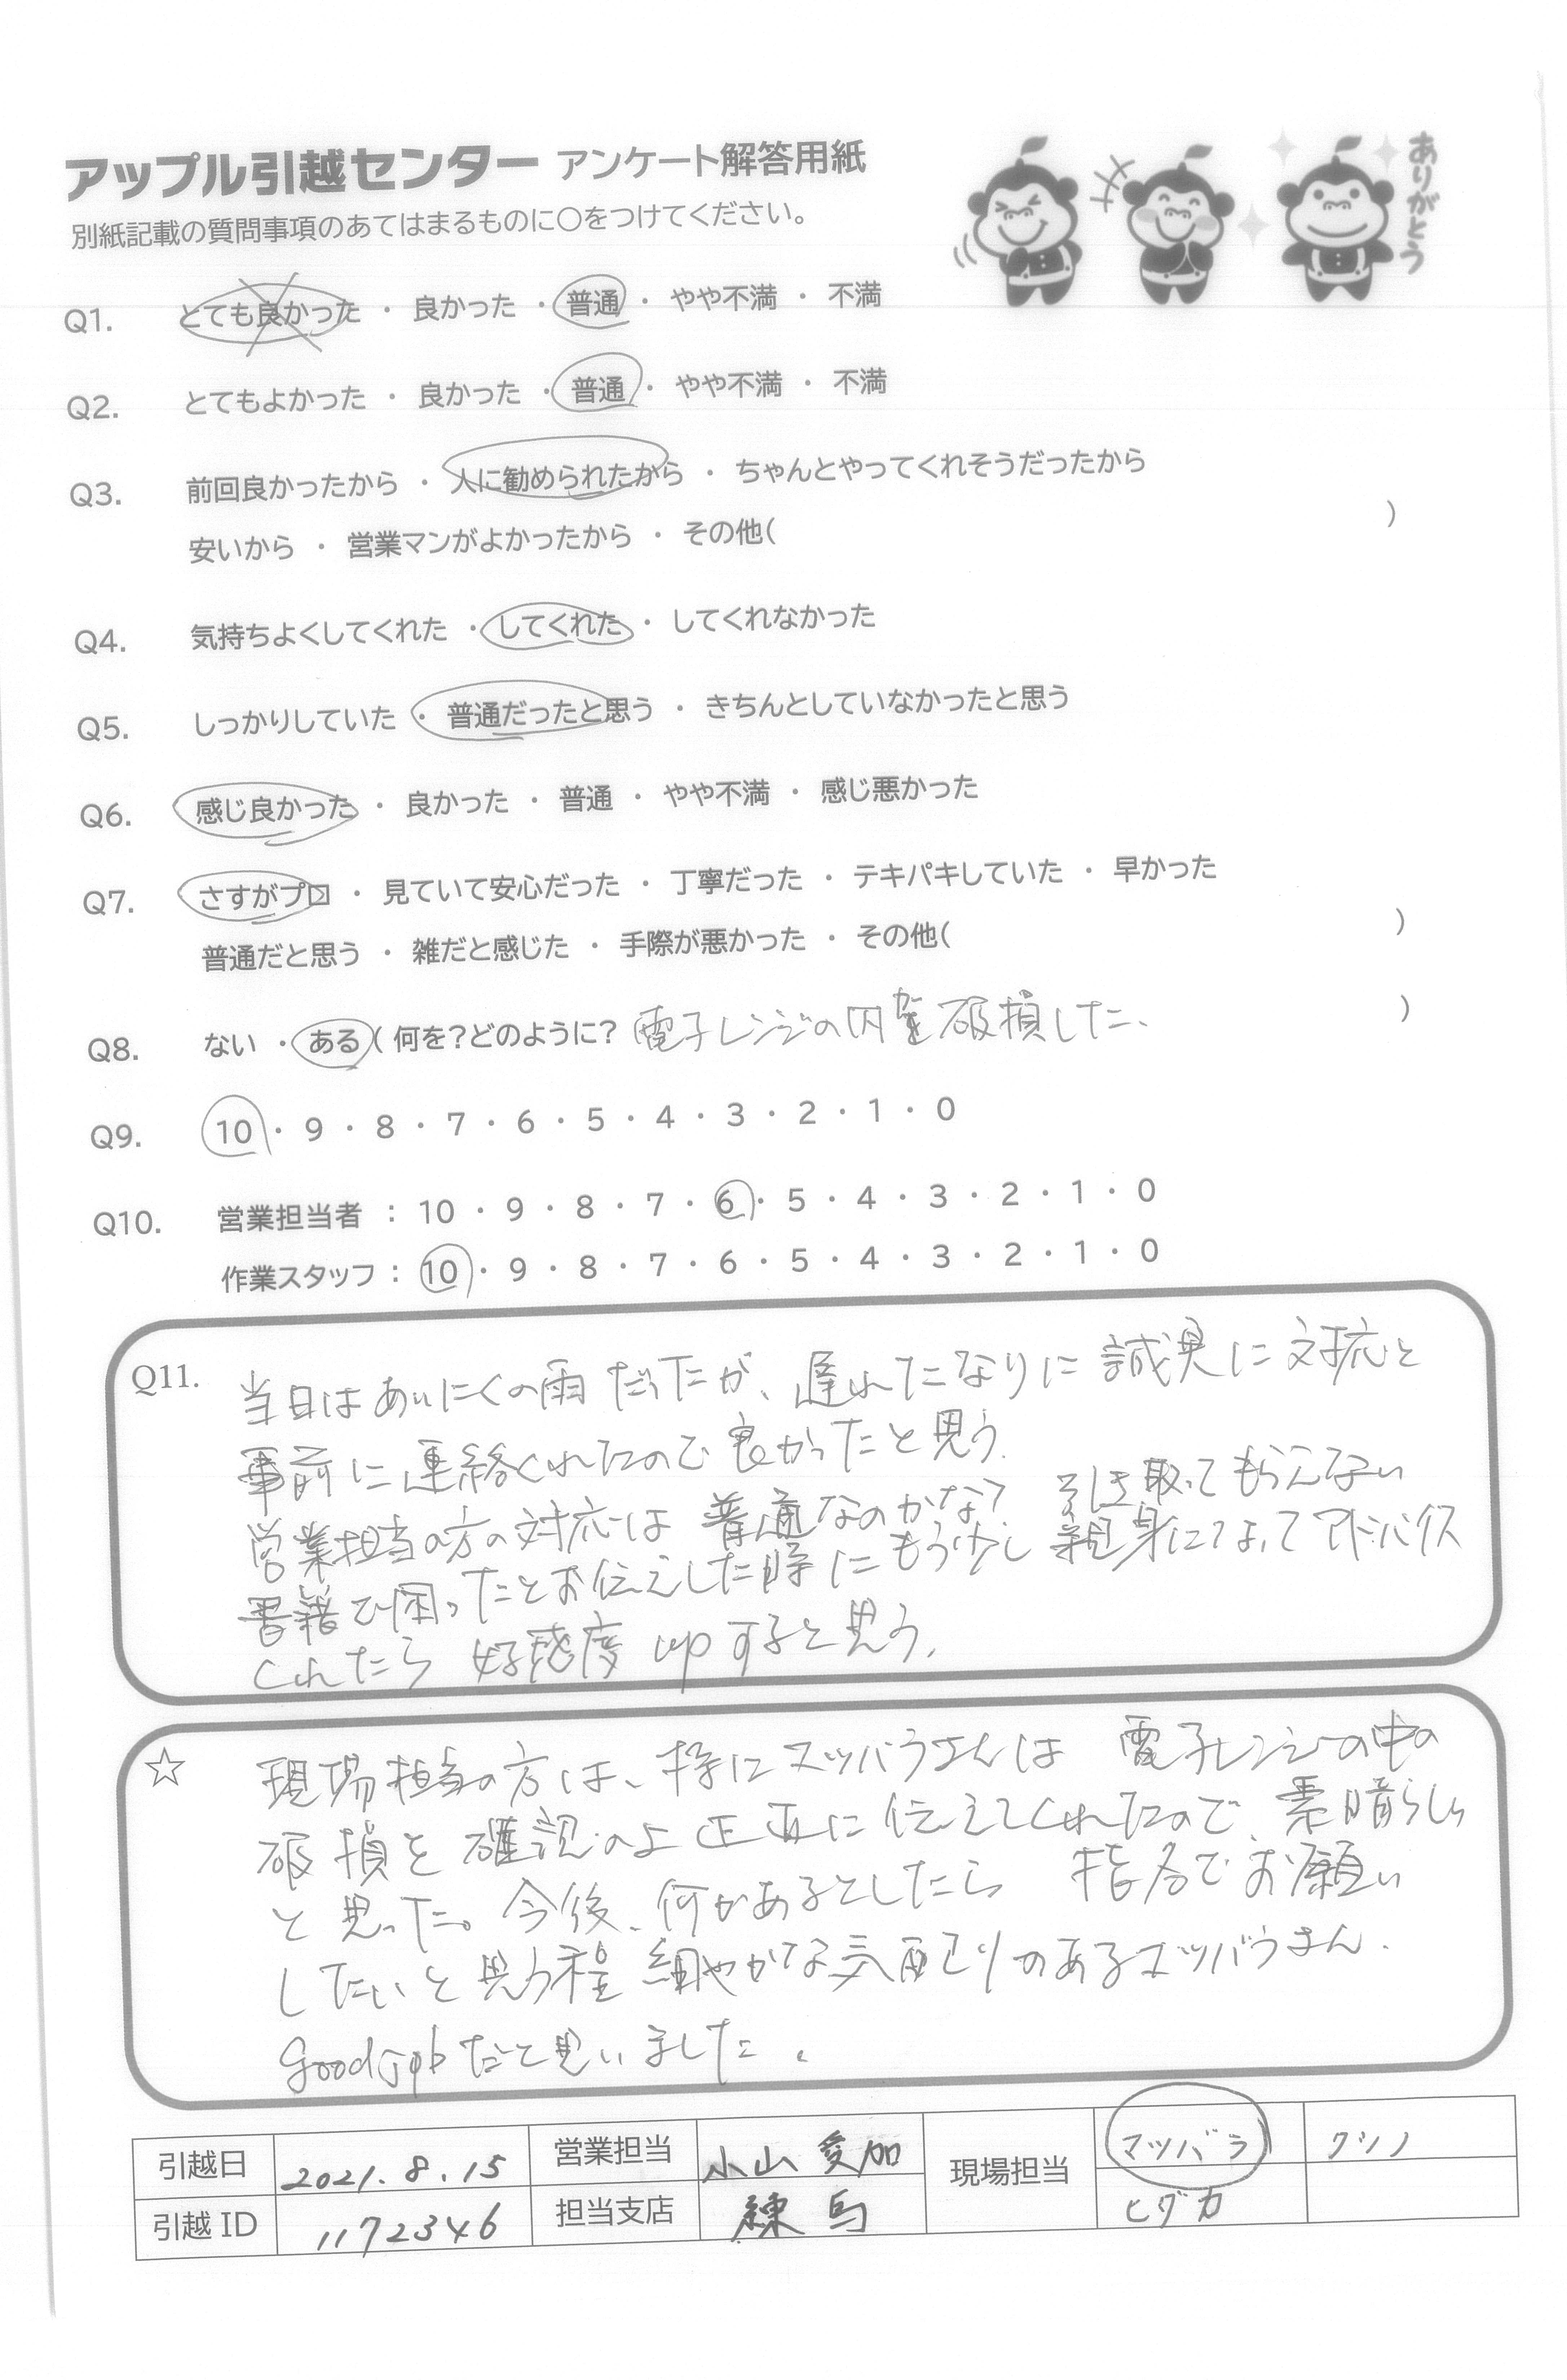 アップル引越センター アンケート解答用紙
ありがとう
別紙記載の質問事項のあてはまるものに○をつけてください。
Q1. とても良かった ・ 良かった ・ 普通 ・ やや不満 ・ 不満
Q2. とてもよかった ・ 良かった ・ 普通 ・ やや不満 ・ 不満
Q3. 前回良かったから ・ 人に勧められたから ・ ちゃんとやってくれそうだったから
安いから ・ 営業マンがよかったから ・ その他( )
Q4. 気持ちよくしてくれた ・ してくれた ・ してくれなかった
Q5. しっかりしていた ・ 普通だったと思う ・ きちんとしていなかったと思う
Q6. 感じ良かった ・ 良かった ・ 普通 ・ やや不満 ・ 感じ悪かった
Q7. さすがプロ ・ 見ていて安心だった ・ 丁寧だった ・ テキパキしていた ・ 早かった
普通だと思う ・ 雑だと感じた ・ 手際が悪かった ・ その他( )
Q8. ない ・ ある ( 何を?どのように? 電子レンジの内が破損した、 )
Q9. 10 ・ 9 ・ 8 ・ 7 ・ 6 ・ 5 ・ 4 ・ 3 ・ 2 ・ 1 ・ 0
Q10. 営業担当者 : 10 ・ 9 ・ 8 ・ 7 ・ 6 ・ 5 ・ 4 ・ 3 ・ 2 ・ 1 ・ 0
作業スタッフ : 10 ・ 9 ・ 8 ・ 7 ・ 6 ・ 5 ・ 4 ・ 3 ・ 2 ・ 1 ・ 0
Q11. 当日はあいにくの雨だったが、遅れたなりに誠実に対応と
事前に連絡くれたので良かったと思う.
営業担当の方の対応は普通なのかな? 引き取ってもらえない
書籍で困ったとお伝えした時にもう少し親身になってアドバイス
くれたら 好感度upすると思う。
☆ 現場担当の方は、特にマツバラさんは 電子レンジの中の
破損を確認のよ正直に伝えてくれたので、素晴らしい
と思った。今後、何かあるとしたら 指名でお願い
したいと思う程 細やかな気配りのあるマツバラさん.
good jobだと思いました。
引越日 2021.8.15 営業担当 小山 愛加 現場担当 マツバラ クツノ
引越 ID 1172346 担当支店 練馬 ヒダカ